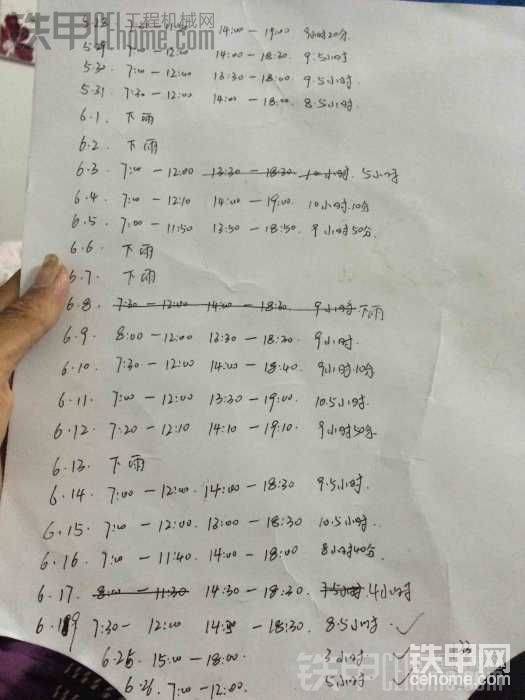 铁甲工程机械网
cehome.com
14:00 — 19:00 9小时20分
5.29 7:00 — 12:00 14:00 — 18:30 9.5小时
5.30 7:00 — 12:00 13:30 — 18:00 9.5小时
5.31 7:30 — 12:00 14:00 — 18:00 8.5小时
6.1. 下雨
6.2. 下雨
6.3 7:00 — 12:00 13:30 — 18:30 10小时 5小时
6.4 7:00 — 12:10 14:00 — 19:00 10小时10分
6.5 7:00 — 11:50 13:50 — 18:50 9小时50分
6.6 下雨
6.7. 下雨
6.8 7:30 — 12:00 14:00 — 18:30 9小时 下雨
6.9 8:00 — 12:00 13:30 — 18:30 9小时
6.10 7:30 — 12:00 14:00 — 18:40 9小时10分
6.11 7:00 — 12:00 13:30 — 19:00 10.5小时
6.12 7:20 — 12:10 14:10 — 19:10 9小时50分
6.13. 下雨
6.14. 7:00 — 12:00. 14:00 — 18:30 9.5小时
6.15. 7:00 — 12:00. 13:00 — 18:30 10.5小时
6.16. 7:00 — 11:40. 14:00 — 18:00 8小时40分
6.17. 8:00 — 11:30 14:30 — 18:30. 7.5小时 4小时
6.19 7:30 — 12:00 14:30 — 18:30. 8.5小时 ✓
6.25. 15:00 — 18:00. 3小时 ✓
6.26. 7:00 — 12:00. 5小时
铁甲网
cehome.com